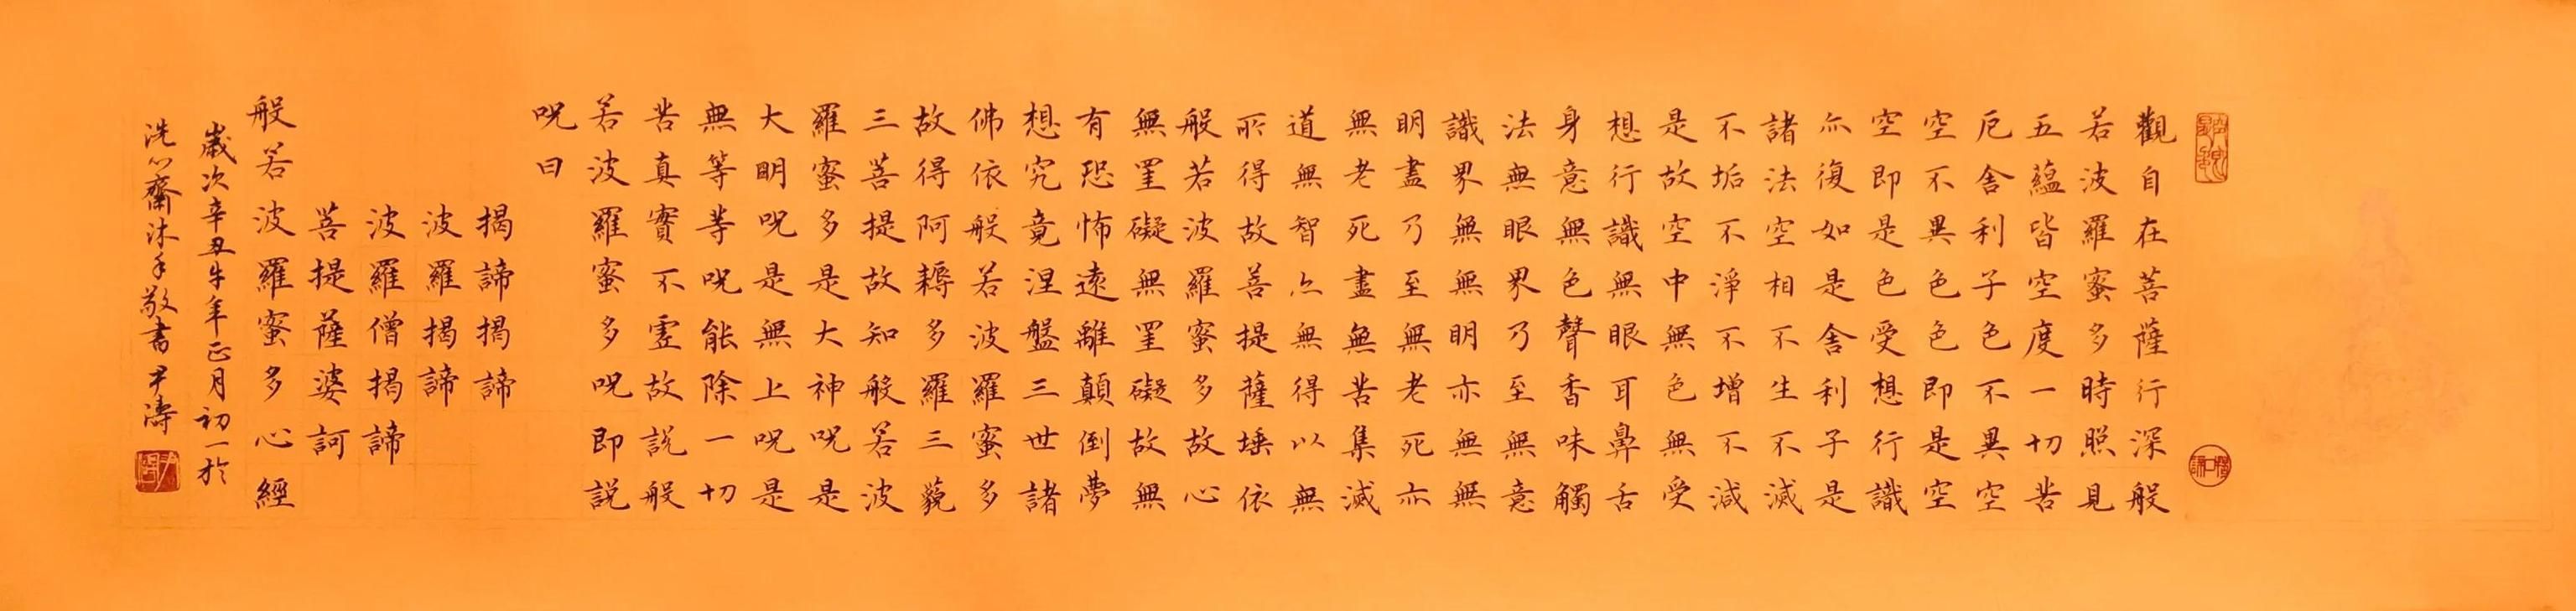 觀自在菩薩行深般
若波羅蜜多時照見
五蘊皆空度一切苦
厄舍利子色不異空
空不異色色即是空
空即是色受想行識
亦復如是舍利子是
諸法空相不生不滅
不垢不淨不增不減
是故空中無色無受
想行識無眼耳鼻舌
身意無色聲香味觸
法無眼界乃至無意
識界無無明亦無無
明盡乃至無老死亦
無老死盡無苦集滅
道無智亦無得以無
所得故菩提薩埵依
般若波羅蜜多故心
無罣礙無罣礙故無
有恐怖遠離顛倒夢
想究竟涅盤三世諸
佛依般若波羅蜜多
故得阿耨多羅三藐
三菩提故知般若波
羅蜜多是大神呪是
大明呪是無上呪是
無等等呪能除一切
苦真實不虛故説般
若波羅蜜多呪即説
呪曰
揭諦揭諦
波羅揭諦
波羅僧揭諦
菩提薩婆訶
般若波羅蜜多心經
歲次辛丑牛年正月初一於
洗心齋沐手敬書尹濤